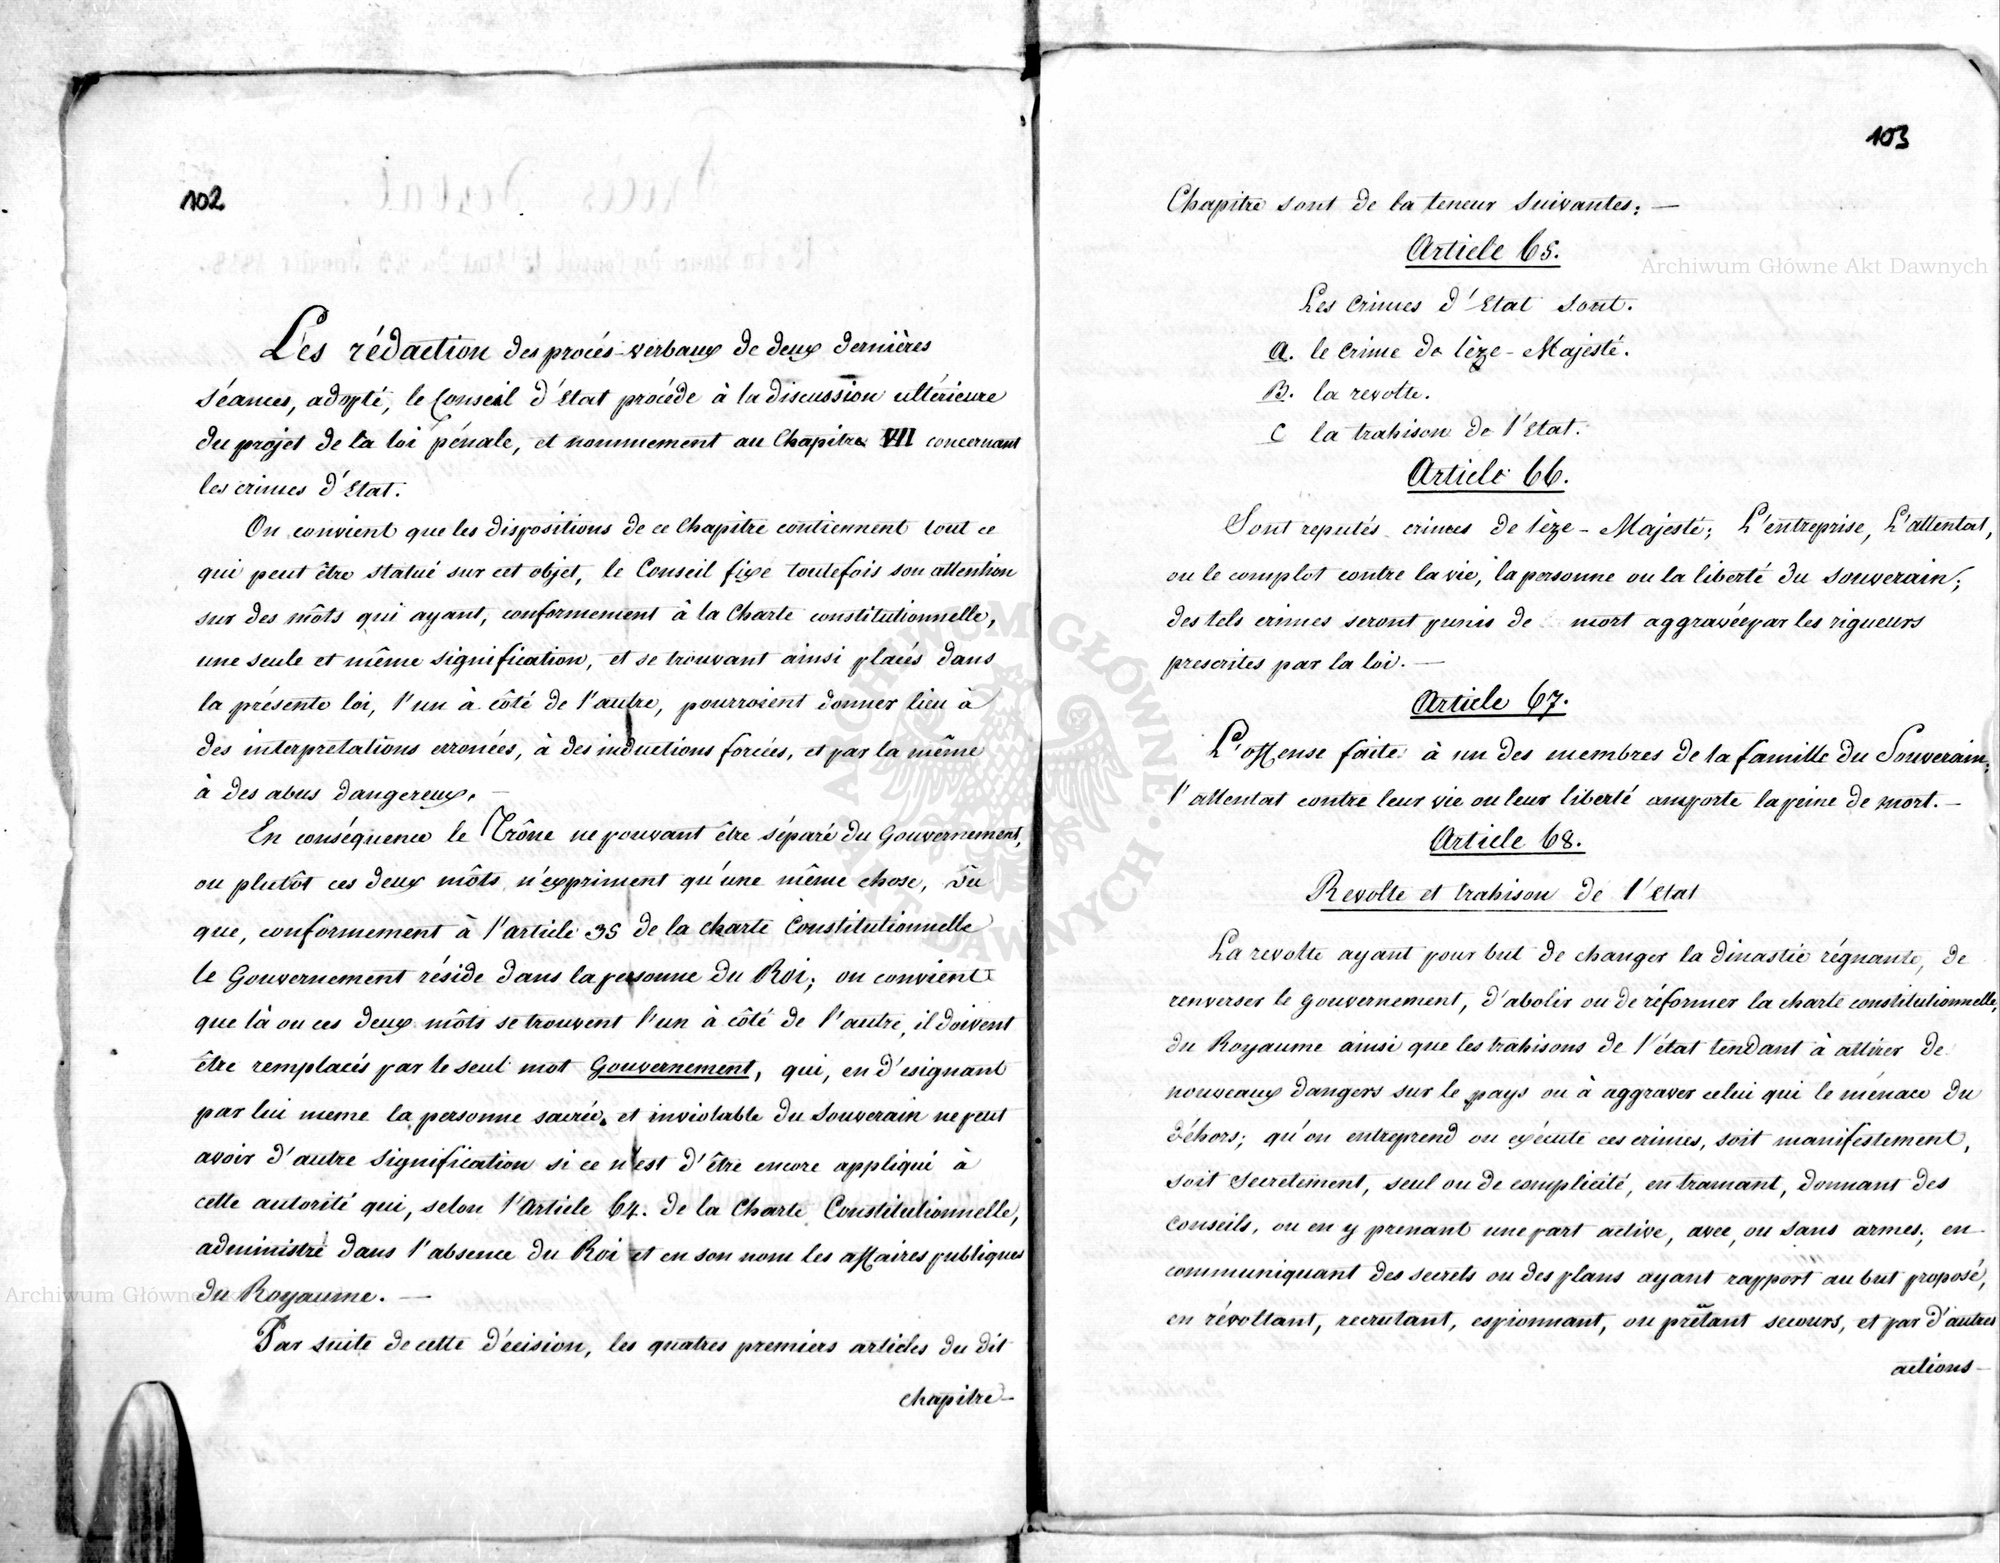 102
Les rédaction des procés-verbaux de deux dernières
séances, adopté, le Conseil d'Etat procéde à la discussion ultérieure
du projet de la loi pénale, et nommement au Chapitre VII concernant
les crimes d'Etat.
On convient que les dispositions de ce Chapitre contiennent tout ce
qui peut être statué sur cet objet, le Conseil fixe toutefois son attention
sur des môts qui ayant, conformement à la Charte constitutionnelle,
une seule et même signification, et se trouvant ainsi placés dans
la présente loi, l'un à côté de l'autre, pourroient donner lieu à
des interpretations erronées, à des inductions forcées, et par la même
à des abus dangereux. —
En conséquence le Trône ne pouvant être séparé du Gouvernement,
ou plutôt ces deux môts n'expriment qu'une même chose, vu
que, conformement à l'article 35 de la charte Constitutionnelle
le Gouvernement réside dans la personne du Roi; on convient
que là ou ces deux môts se trouvent l'un à côté de l'autre, il doivent
être remplacés par le seul mot Gouvernement, qui, en d'esignant
par lui meme la personne sacrée et inviolable du Souverain ne peut
avoir d'autre signification si ce n'est d'être encore appliqué à
cette autorité qui, selon l'Article 64. de la Charte Constitutionnelle,
administre dans l'absence du Roi et en son nom les affaires publiques
du Royaume. —
Par suite de cette d'écision, les quatres premiers articles du dit
chapitre —
103
Chapitre sont de la teneur suivantes: —
Article 65.
Les crimes d'Etat sont.
A. le crime de lèze-Majesté.
B. la revolte.
C la trahison de l'Etat.
Article 66.
Sont reputés crimes de lèze-Majesté; L'entreprise, L'attentat,
ou le complot contre la vie, la personne ou la liberté du souverain;
des tels crimes seront punis de mort aggravée par les rigueurs
prescrites par la loi. —
Article 67.
L'offense faite à un des membres de la famille du Souverain;
l'attentat contre leur vie ou leur liberté amporte la peine de mort. —
Article 68.
Revolte et trahison de l'Etat
La revolte ayant pour but de changer la dinastie régnante, de
renverser le gouvernement, d'abolir ou de réformer la charte constitutionnelle,
du Royaume ainsi que les trahisons de l'état tendant à attirer de
nouveaux dangers sur le pays ou à aggraver celui qui le ménace du
déhors; qu'on entreprend ou exécute ces crimes, soit manifestement,
soit secretement, seul ou de complicité, en tramant, donnant des
conseils, ou en y prenant une part active, avec, ou sans armes; en
communiquant des secrets ou des plans ayant rapport au but proposé,
en révoltant, recrutant, espionnant, ou prêtant secours, et par d'autres
actions —
Archiwum Główne Akt Dawnych
ARCHIWUM GŁÓWNE AKT DAWNYCH
Archiwum Główne